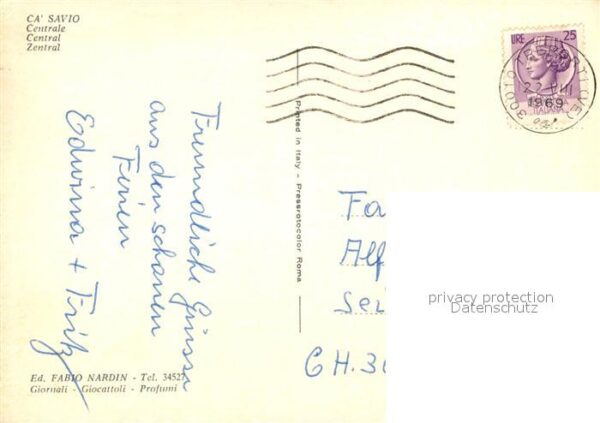 CA' SAVIO
Centrale
Central
Zentral
LIRE 25
30010 TREPORTI (VE)
22 VIII
1969
Printed in Italy - Pressrotocolor Roma
Freundliche Grüsse
aus den schönen
Ferien
Edwina + Fritz
Fa
Alf
Sei
CH.30
privacy protection
Datenschutz
Ed. FABIO NARDIN - Tel. 34527
Giornali - Giocattoli - Profumi